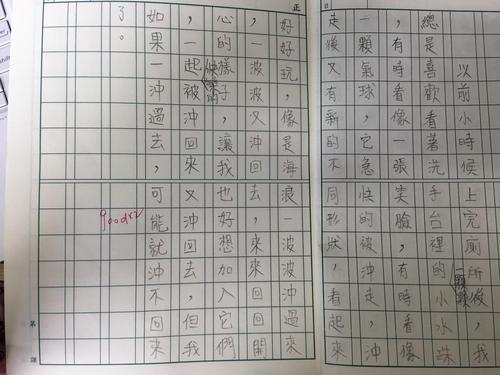 以前小時候上完廁所後，我
總是喜歡看著洗手台裡的一顆顆小水珠
，有時看像一張笑臉，有時看像
一顆氣球，它急快的被沖走，沖
走後又有新的不同形狀，看起來
好好玩，像是海浪一波波沖過來
，一波波又沖回去，來來回回開
心的快樂的樣子，讓我也好想加入它們
，一起被沖回來又沖回去，但我
如果一沖過去，可能就沖不回來
了。
goodx2